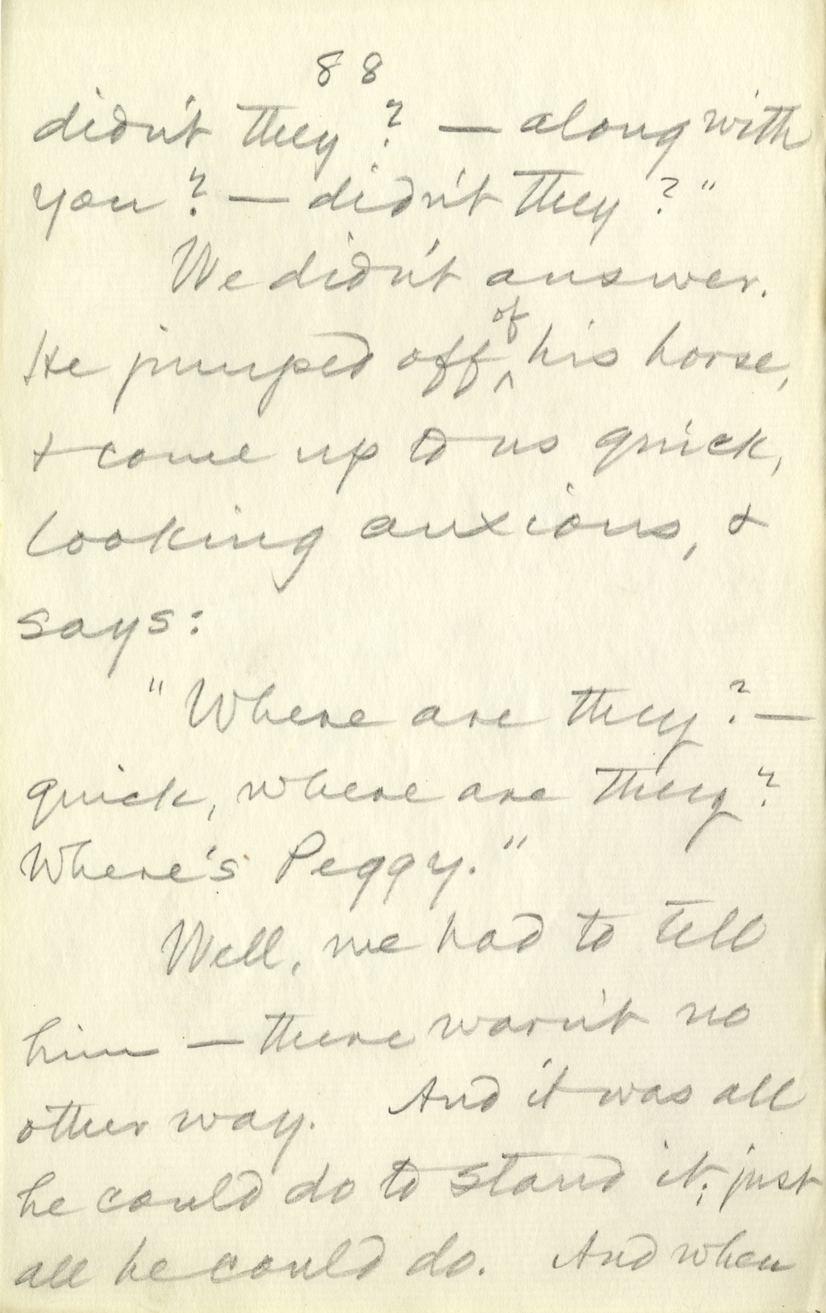 88
didn't they? — along with
you? — didn't they?"
We didn't answer.
He jumped off of his horse,
& come up to us quick,
looking anxious, &
says:
"Where are they? —
quick, where are they?
Where's Peggy."
Well, we had to tell
him — there warn't no
other way. And it was all
he could do to stand it; just
all he could do. And when